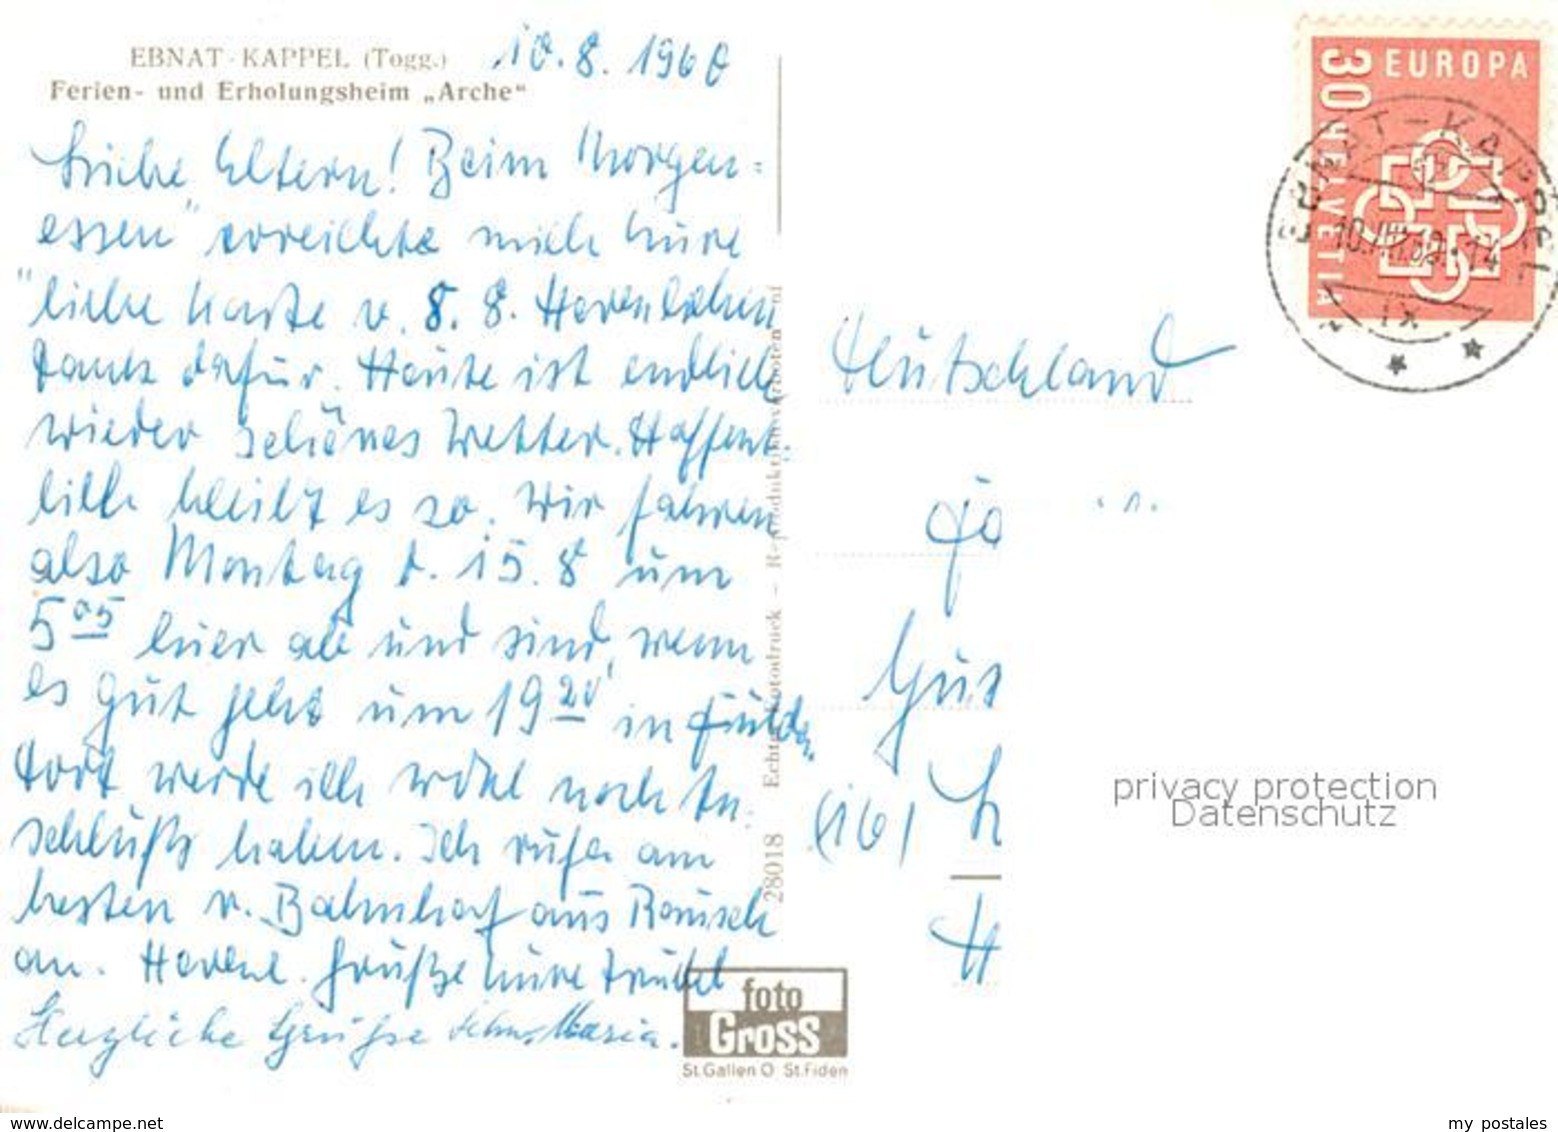 EBNAT-KAPPEL (Togg.)
Ferien- und Erholungsheim „Arche“
10.8.1960
Liebe Eltern! Beim Morgen=
essen erreichte mich Eure
liebe Karte v. 8. 8. Herzlichen
Dank dafür. Heute ist endlich
wieder schönes Wetter. Hoffent-
lich bleibt es so. Wir fahren
also Montag d. 15. 8 um
5 05 hier ab und sind, wenn
es gut geht um 19 20 in Fulda.
Dort werde ich wohl noch An-
schluß haben. Ich rufe am
besten v. Bahnhof aus
an. Herzl. Grüße Eure
Herzliche Grüße Maria.
28018 Echte Fotodruck – Reproduktion verboten
foto
Gross
St.Gallen O St.Fiden
30 EUROPA
HELVETIA
EBNAT-KAPPEL
IX
Deutschland
(16)
privacy protection
Datenschutz
www.delcampe.net
my postales